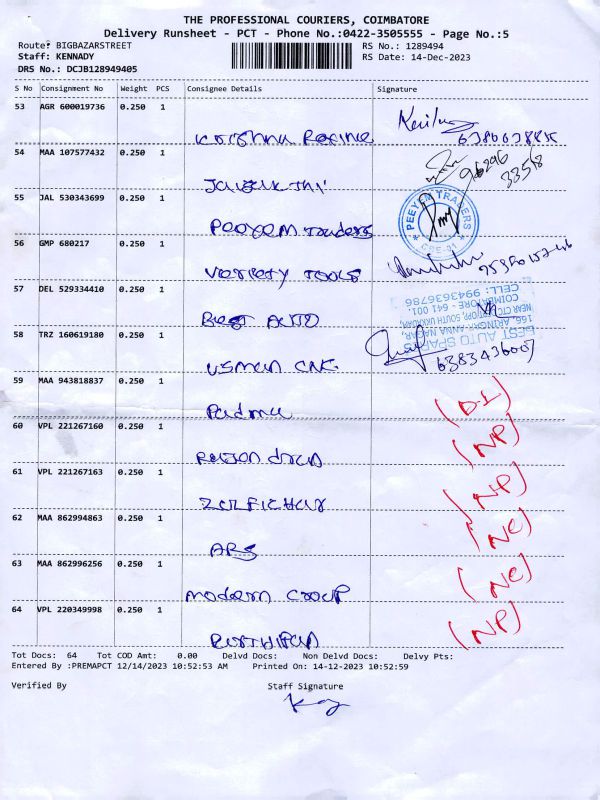 THE PROFESSIONAL COURIERS, COIMBATORE
Delivery Runsheet - PCT - Phone No.:0422-3505555 - Page No.:5
Route: BIGBAZARSTREET
RS No.: 1289494
Staff: KENNADY
RS Date: 14-Dec-2023
DRS No.: DCJB128949405
S No Consignment No Weight PCS Consignee Details Signature
53 AGR 600019736 0.250 1
Krishna
54 MAA 107577432 0.250 1
96296
3358
55 JAL 530343699 0.250 1
Peeyem Traders
PEEYEM TRADERS
CBE-01
56 GMP 680217 0.250 1
Variety Tools
57 DEL 529334410 0.250 1
Best Auto
BEST AUTO SPARES
166, ARINGAR ANNA NAGAR,
NEAR CTC DEPOT, SOUTH UKKADAM,
COIMBATORE - 641 001.
CELL: 9943636786
58 TRZ 160619180 0.250 1
6383436007
Usman
59 MAA 943818837 0.250 1
Padma
(D-1)
60 VPL 221267160 0.250 1
(NP)
61 VPL 221267163 0.250 1
(NP)
62 MAA 862994863 0.250 1
ARS
(NC)
63 MAA 862996256 0.250 1
Modern Group
(NC)
64 VPL 220349998 0.250 1
(NP)
Tot Docs: 64 Tot COD Amt: 0.00 Delvd Docs: Non Delvd Docs: Delvy Pts:
Entered By :PREMAPCT 12/14/2023 10:52:53 AM Printed On: 14-12-2023 10:52:59
Verified By Staff Signature